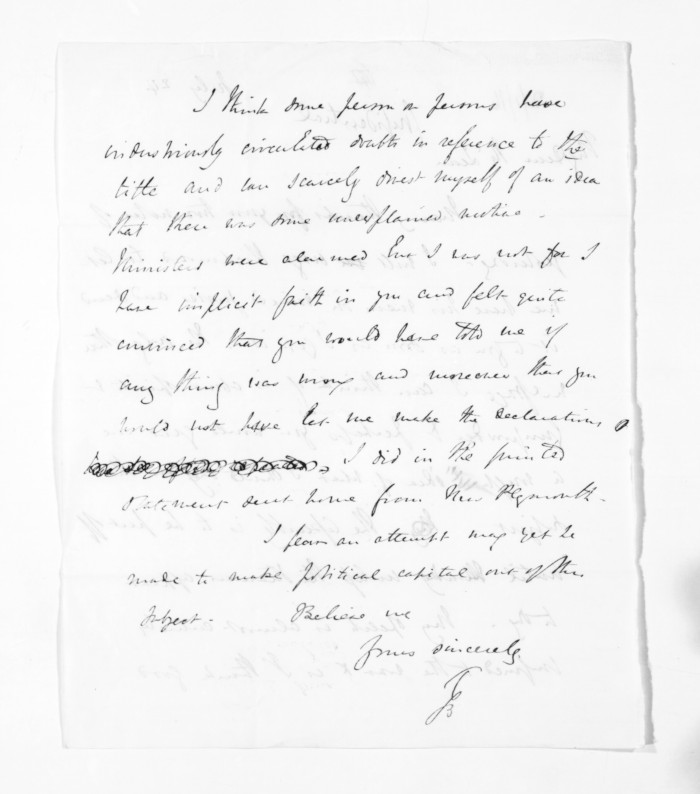 I think some person or persons have
industriously circulated doubts in reference to the
title and can scarcely divest myself of an idea
that there was some unexplained motive -
Ministers were alarmed but I was not for I
have implicit faith in you and felt quite
convinced that you would have told me if
any thing was wrong and moreover that you
would not have let me make the declarations
I did in the printed
statement sent home from New Plymouth -
I fear an attempt may yet be
made to make political capital out of this
subject - Believe me
Yours sincerely
TGB